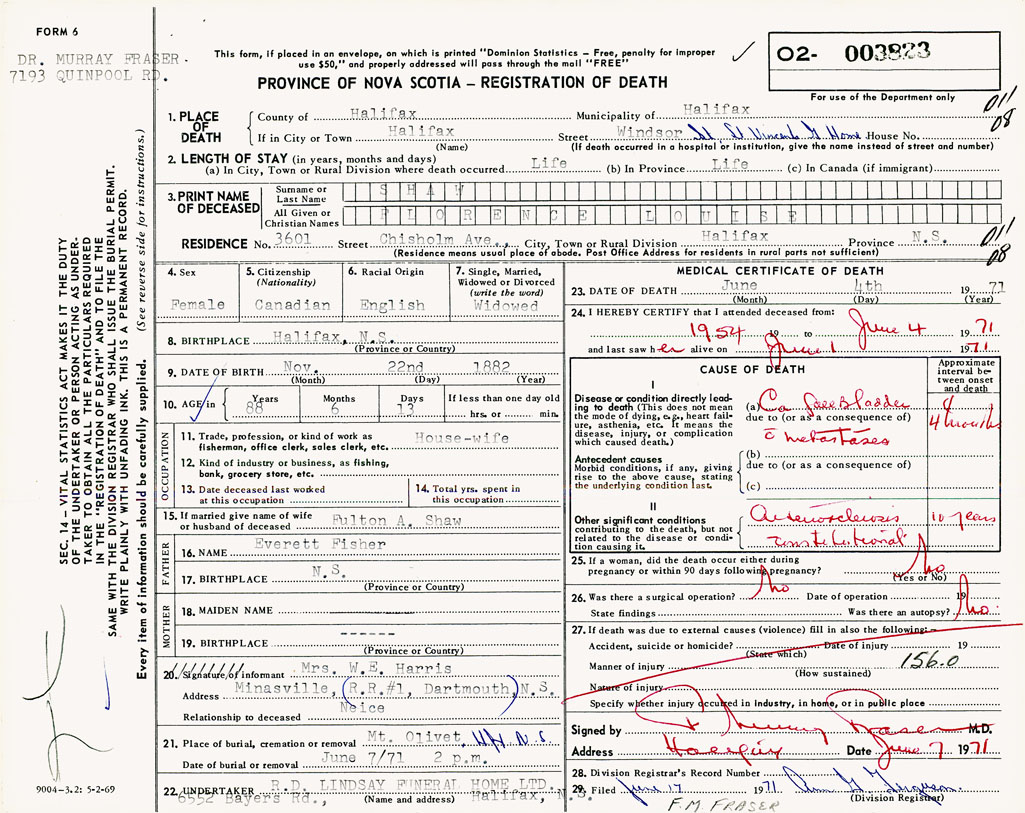 FORM 6
DR. MURRAY FRASER.
7193 QUINPOOL RD.
This form, if placed in an envelope, on which is printed "Dominion Statistics – Free, penalty for improper
use $50," and properly addressed will pass through the mail "FREE"
PROVINCE OF NOVA SCOTIA – REGISTRATION OF DEATH
02- 003823
For use of the Department only
011
08
1. PLACE OF DEATH
County of Halifax Municipality of Halifax
If in City or Town Halifax Street Windsor St. St. Vincents G Home House No.
(Name) (If death occurred in a hospital or institution, give the name instead of street and number)
2. LENGTH OF STAY (in years, months and days)
(a) In City, Town or Rural Division where death occurred Life (b) In Province Life (c) In Canada (if immigrant)
3. PRINT NAME OF DECEASED
Surname or Last Name SHAW
All Given or Christian Names FLORENCE LOUISE
RESIDENCE No. 3601 Street Chisholm Ave., City, Town or Rural Division Halifax Province N.S.
(Residence means usual place of abode. Post Office Address for residents in rural parts not sufficient)
011
08
4. Sex
Female
5. Citizenship
(Nationality)
Canadian
6. Racial Origin
English
7. Single, Married,
Widowed or Divorced
(write the word)
Widowed
8. BIRTHPLACE Halifax, N.S.
(Province or Country)
9. DATE OF BIRTH Nov. 22nd 1882
(Month) (Day) (Year)
10. AGE in Years 88 Months 6 Days 13 If less than one day old
hrs. or min.
OCCUPATION
11. Trade, profession, or kind of work as
fisherman, office clerk, sales clerk, etc. House-wife
12. Kind of industry or business, as fishing,
bank, grocery store, etc.
13. Date deceased last worked
at this occupation
14. Total yrs. spent in
this occupation
15. If married give name of wife
or husband of deceased Fulton A. Shaw
FATHER
16. NAME Everett Fisher
17. BIRTHPLACE N.S.
(Province or Country)
MOTHER
18. MAIDEN NAME
19. BIRTHPLACE ------
(Province or Country)
20. Signature of informant Mrs. W.E. Harris
Address Minasville, (R.R.#1, Dartmouth,) N.S.
Relationship to deceased Neice
21. Place of burial, cremation or removal Mt. Olivet, Hfx N.S.
Date of burial or removal June 7/71 2 p.m.
22. UNDERTAKER R.D. LINDSAY FUNERAL HOME LTD.
6552 Bayers Rd., (Name and address) Halifax, N.S.
MEDICAL CERTIFICATE OF DEATH
23. DATE OF DEATH June 4th 1971
(Month) (Day) (Year)
24. I HEREBY CERTIFY that I attended deceased from:
1954 19 to June 4 1971
and last saw her alive on June 1 1971
CAUSE OF DEATH
Approximate
interval be-
tween onset
and death
I
Disease or condition directly lead-
ing to death (This does not
the mode of dying, e.g., heart fail-
ure, asthenia, etc. It means the
disease, injury, or complication
which caused death.)
(a) Ca Gall Bladder
due to (or as a consequence of)
c̄ metastases
4 months
Antecedent causes
Morbid conditions, if any, giving
rise to the above cause, stating
the underlying condition last.
(b)
due to (or as a consequence of)
(c)
II
Other significant conditions
contributing to the death, but not
related to the disease or condi-
tion causing it.
Arteriosclerosis 10 years
constitutional
25. If a woman, did the death occur either during
pregnancy or within 90 days following pregnancy? No
(Yes or No)
26. Was there a surgical operation? No Date of operation 19
State findings Was there an autopsy? No
27. If death was due to external causes (violence) fill in also the following:–
Accident, suicide or homicide? Date of injury 19
(State which)
Manner of injury 156.0
(How sustained)
Nature of injury
Specify whether injury occurred in industry, in home, or in public place
Signed by Murray Fraser M.D.
Address Halifax Date June 7 1971
28. Division Registrar's Record Number
29. Filed June 17 1971
(Division Registrar)
F.M. FRASER
SEC. 14 – VITAL STATISTICS ACT MAKES IT THE DUTY
OF THE UNDERTAKER OR PERSON ACTING AS UNDER-
TAKER TO OBTAIN ALL THE PARTICULARS REQUIRED
IN THE "REGISTRATION OF DEATH" AND TO FILE THE
SAME WITH THE DIVISION REGISTRAR WHO SHALL ISSUE THE BURIAL PERMIT.
WRITE PLAINLY WITH UNFADING INK. THIS IS A PERMANENT RECORD.
Every item of information should be carefully supplied. (See reverse side for instructions.)
9004-3.2: 5-2-69